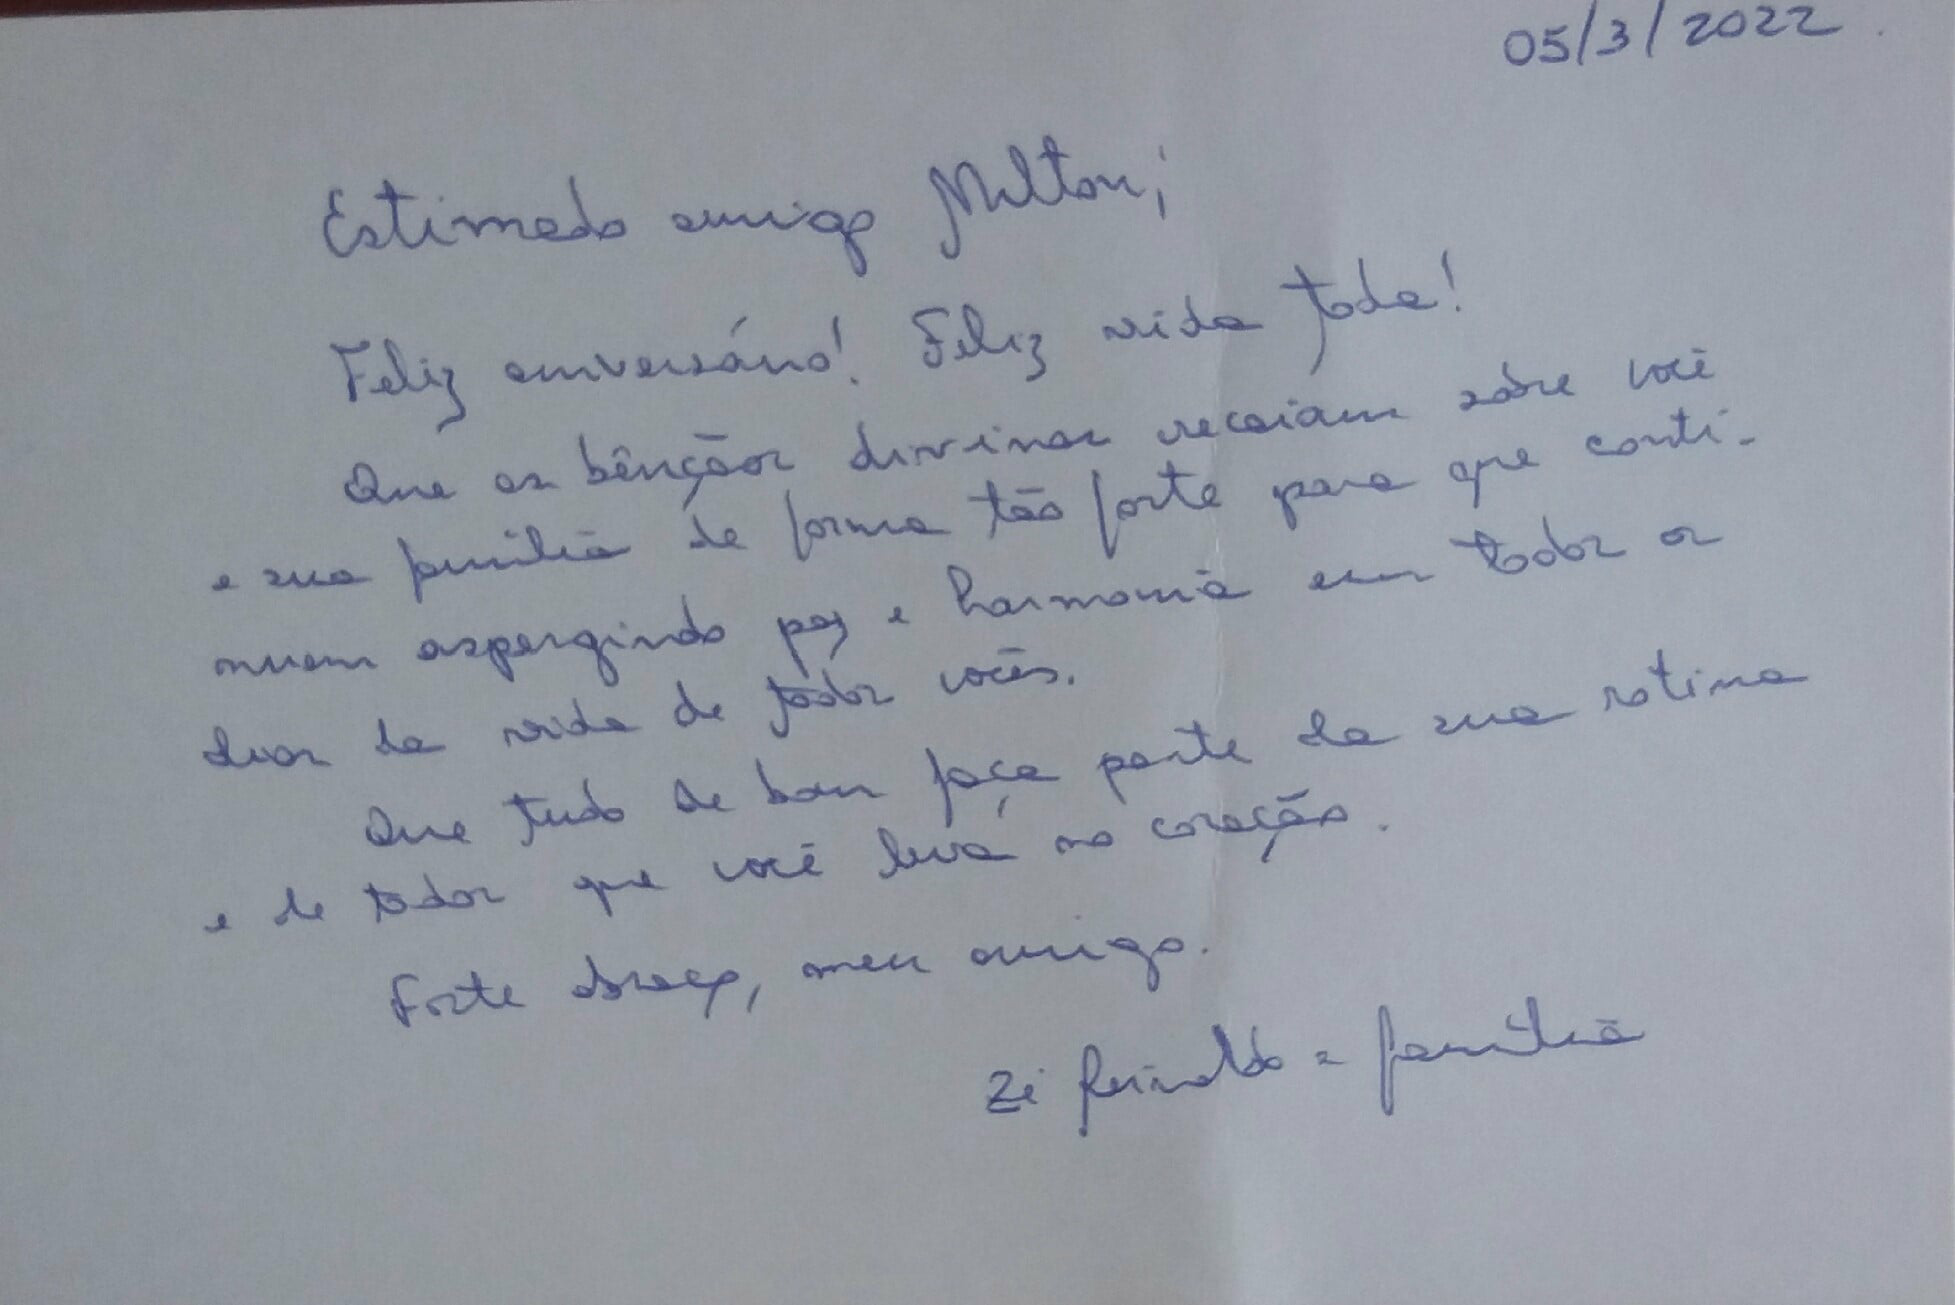 05/3/2022
Estimado amigo Milton;
Feliz aniversário! Feliz vida toda!
Que as bênçãos divinas recaiam sôbre você
e sua família de forma tão forte para que conti-
nuem aspergindo paz e harmonia em todos os
dias da vida de todos vocês.
Que tudo de bom faça parte da sua rotina
e de todos que você leva no coração.
Forte abraço, meu amigo.
Zé Reinaldo e família